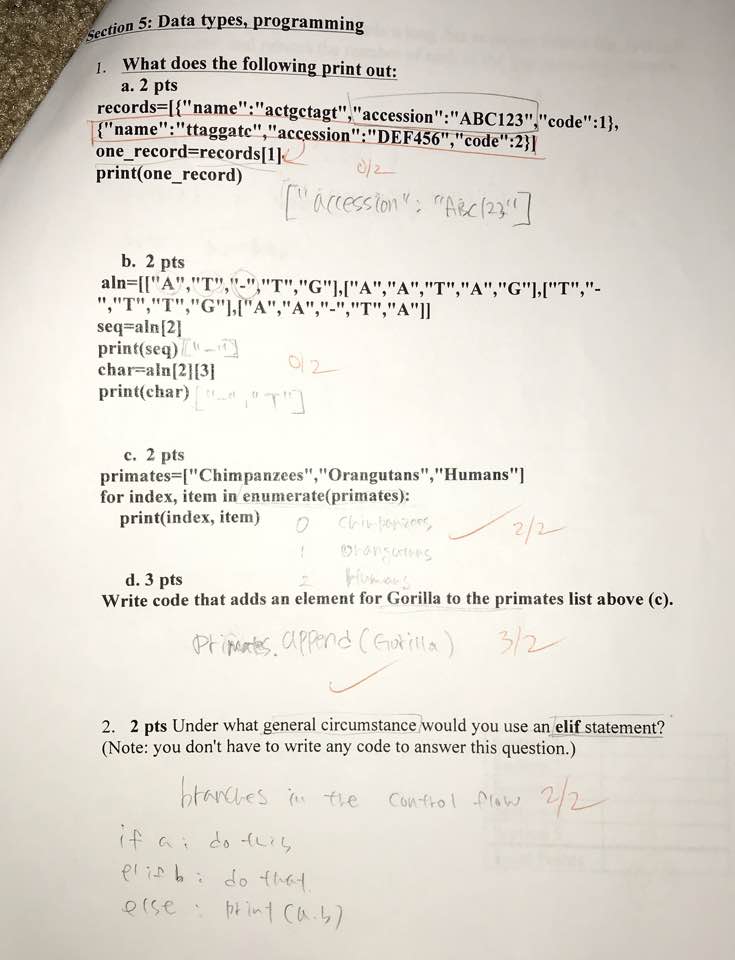 Section 5: Data types, programming
1. What does the following print out:
a. 2 pts
records=[{"name":"actgctagt","accession":"ABC123","code":1},
{"name":"ttaggatc","accession":"DEF456","code":2}]
one_record=records[1]
0/2
print(one_record)
["accession": "ABC123"]
b. 2 pts
aln=[["A","T","-","T","G"],["A","A","T","A","G"],["T","-
","T","T","G"],["A","A","-","T","A"]]
seq=aln[2]
print(seq) ["-"]
char=aln[2][3] 0/2
print(char) ["-","T"]
c. 2 pts
primates=["Chimpanzees","Orangutans","Humans"]
for index, item in enumerate(primates):
print(index, item) 0 Chimpanzees 2/2
1 Orangutans
d. 3 pts 2 Humans
Write code that adds an element for Gorilla to the primates list above (c).
Primates.append(Gorilla) 3/2
2. 2 pts Under what general circumstance would you use an elif statement?
(Note: you don't have to write any code to answer this question.)
branches in the control flow 2/2
if a: do this
elif b: do that
else: print(a.b)